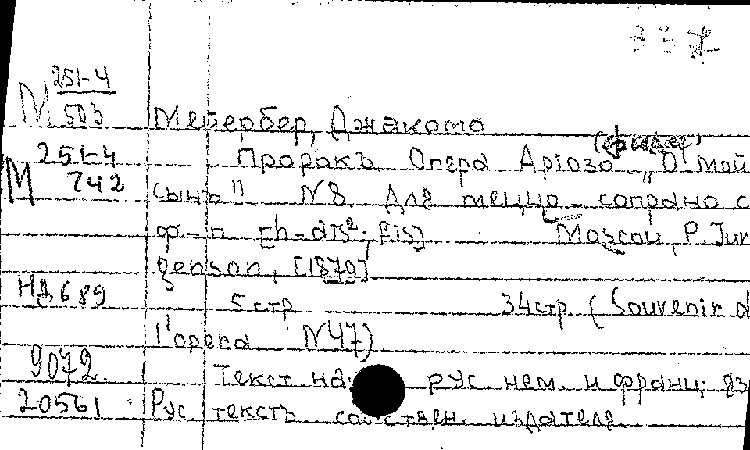 337
М 251-4
503
Мейербер, Джакомо
251-4
М 742
(Фидес)
Пророкъ Опера Арiозо „О мой
сынъ" N8. Для меццо-сопрано с
ф-п [h-dis²; fis] Moscou, P. Jur
genson, [1870]
НД 689 5 стр 34 стр. (Souvenir d
l'opera N47)
9072 Текст на рус нем. и франц. яз
20561 Рус текстъ собствен. издателя